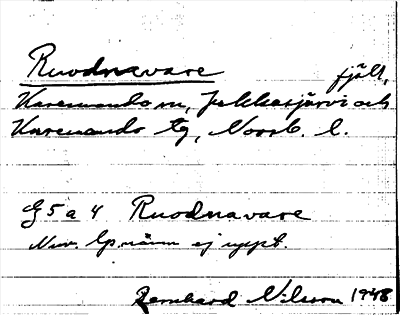 Ruodnavare fjäll,
Karesuando sn, Jukkasjärvi och
Karesuando tg, Norrb. l.
G 5 a 4 Ruodnavare
Nuv. lp.namn ej uppt.
Bernhard Nilsson 1948